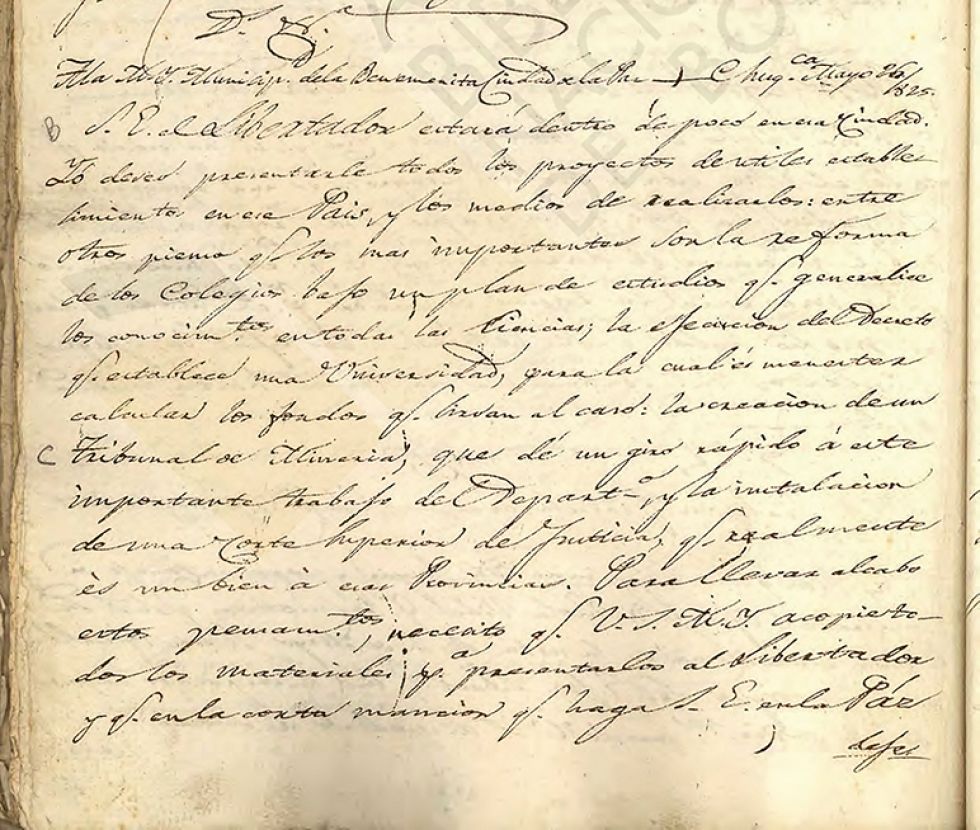 D.ˢ &.ª
A la M. Y. Municip. de la Benemerita Ciudad de la Paz — Chuq.ᶜᵃ Mayo 26/1825.
B S. E. el Libertador estará dentro de poco en esa Ciudad.
Yo deseo presentarle todos los proyectos de utiles estable-
simientos en ese Pais, y los medios de realizarlos: entre
otros pienso q.ᵉ los mas importantes son la reforma
de los Colegios bajo un plan de estudios q.ᵉ generalice
los conocim.ᵗᵒˢ en todas las Ciencias; la ejecucion del Decreto
q.ᵉ establece una Universidad, para la cual és menester
calcular los fondos q.ᵉ sirvan al caso: la creacion de un
C Tribunal de Mineria, que dé un giro rápido á este
importante trabajo del Depart.º, y la instalacion
de una Corte Superior de Justicia, q.ᵉ realmente
és un bien à esas Provincias. Para llevar al cabo
estos pensam.ᵗᵒˢ, necesito q.ᵉ V. S. M. Y. acopie to-
dos los materiales p.ª presentarlos al Libertador
y q.ᵉ en la corta mancion q.ᵉ haga S. E. en la Páz
dejes